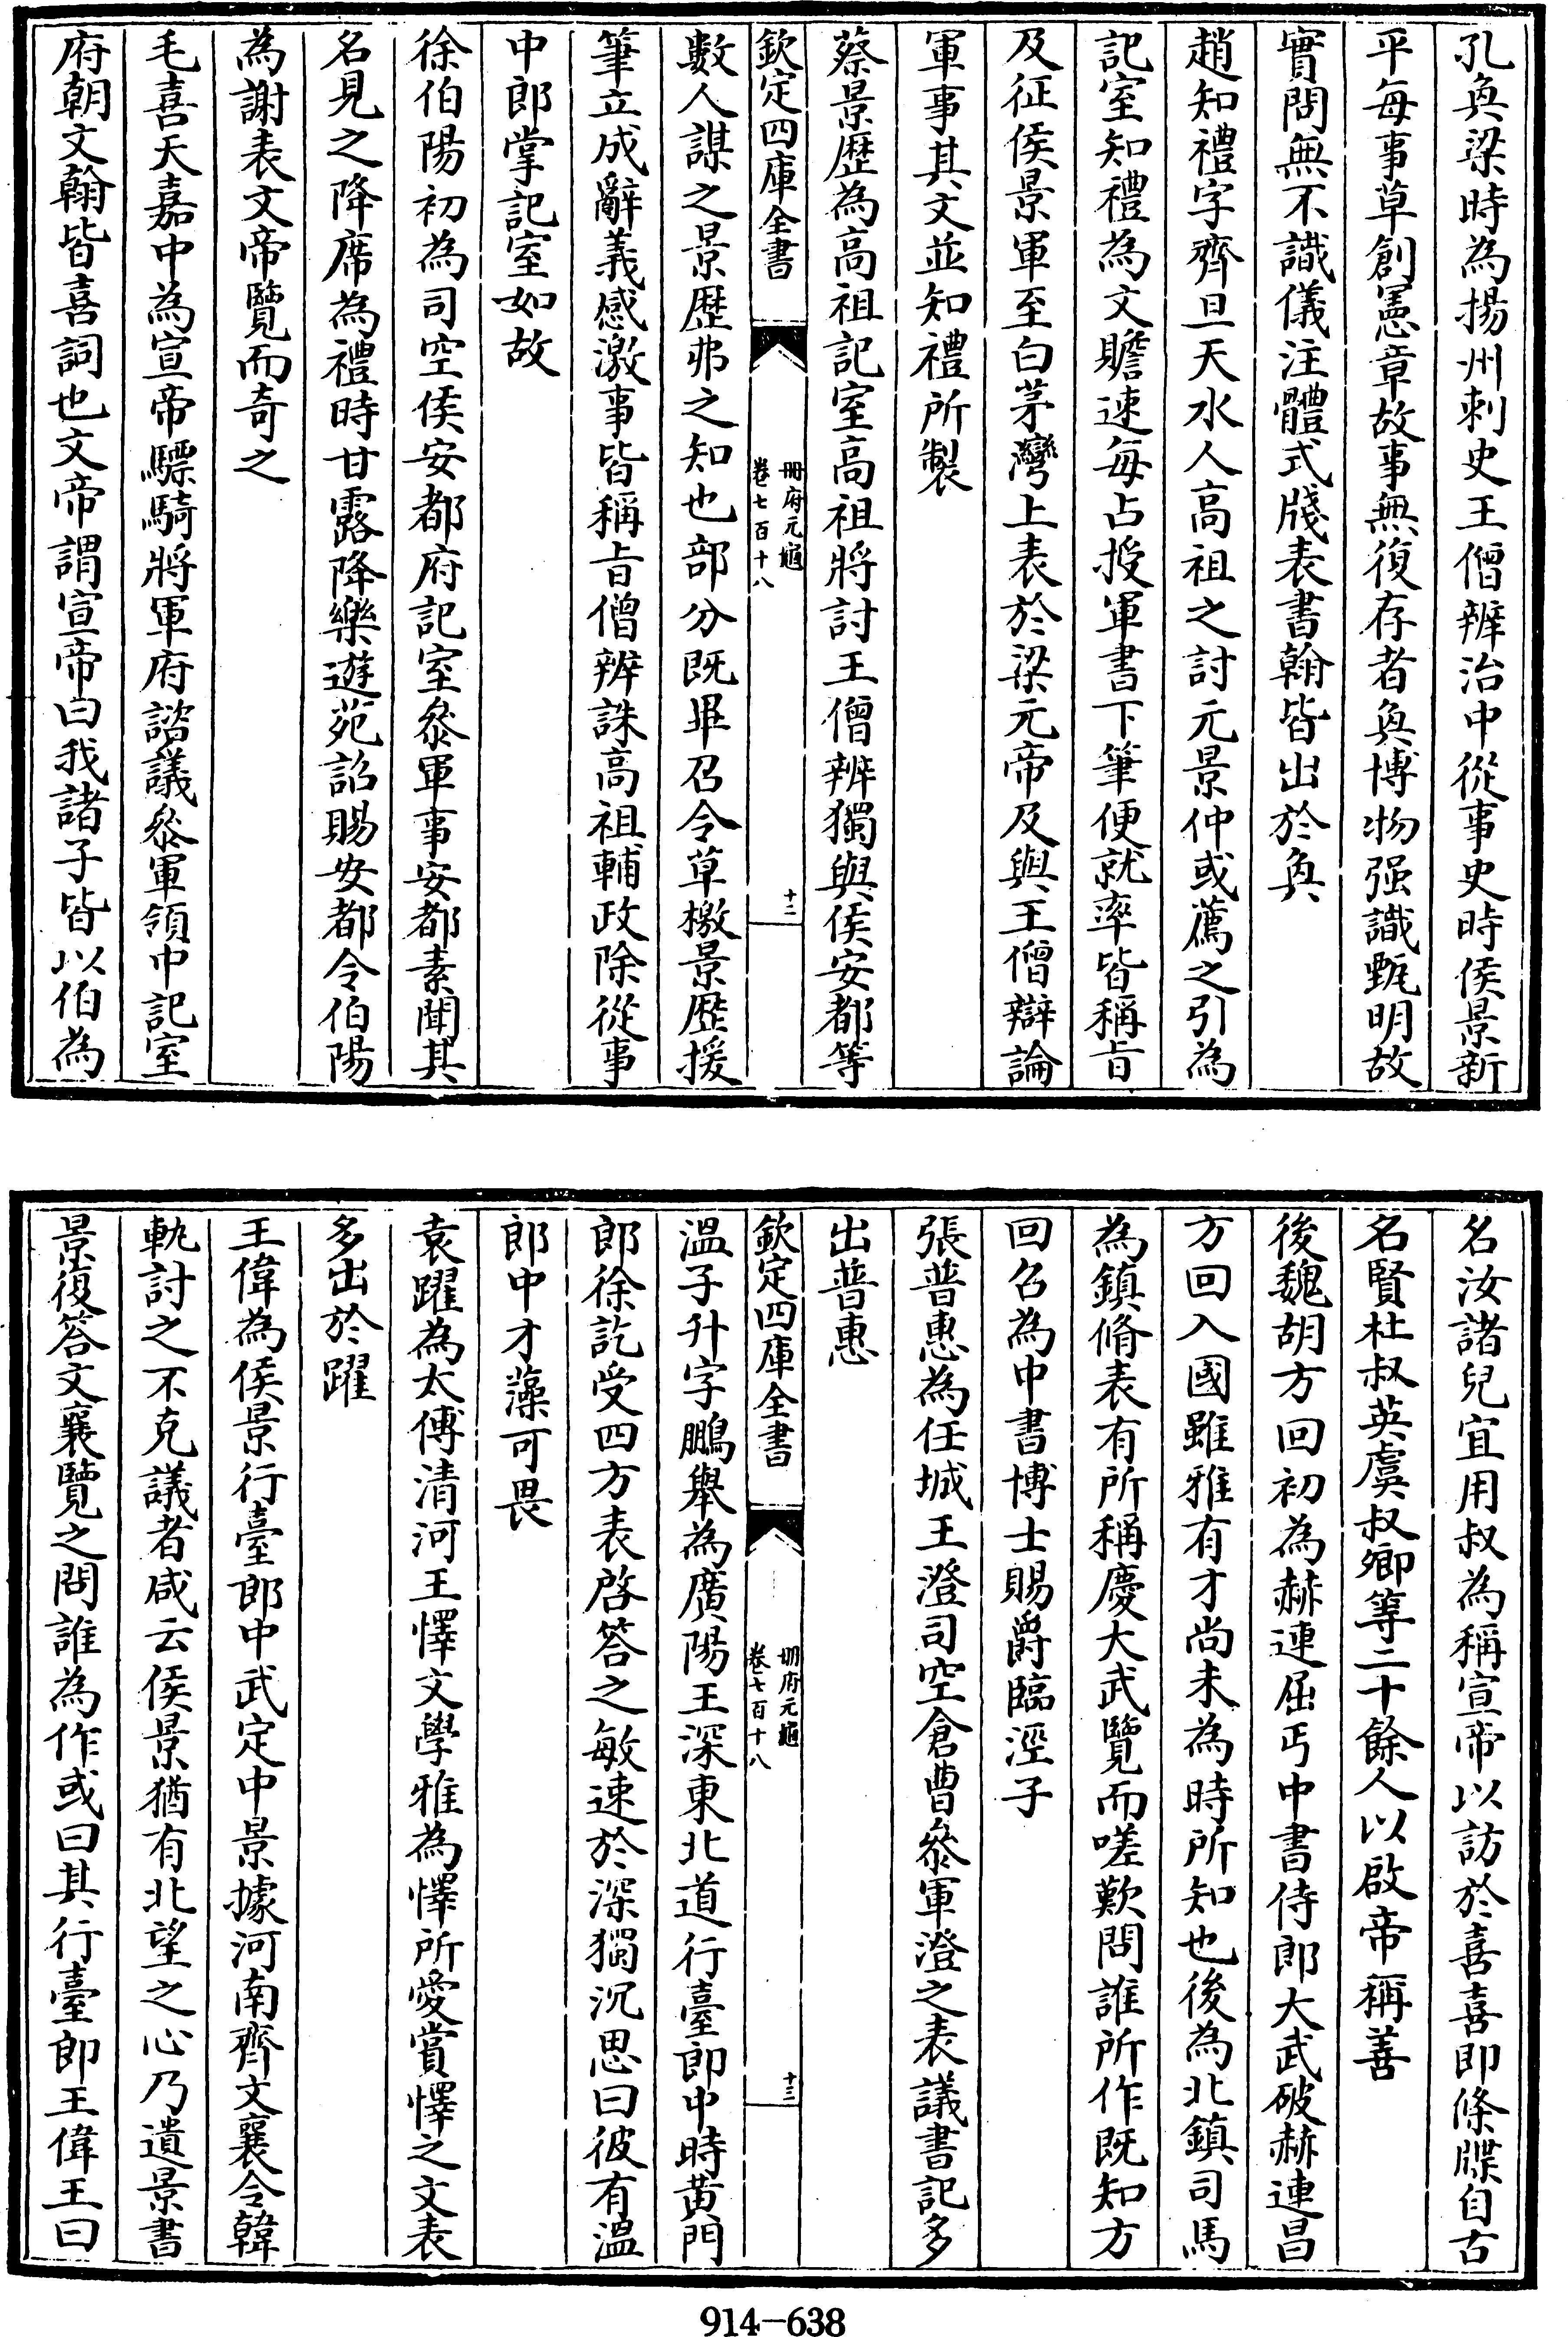 孔奐梁時為揚州刺史王僧辨治中從事史時侯景新
平每事草創憲章故事無復存者奐博物强識甄明故
實問無不識儀注體式牋表書翰皆出於奐
趙知禮字齊旦天水人高祖之討元景仲或薦之引為
記室知禮為文贍速每占授軍書下筆便就率皆稱旨
及征侯景軍至白茅灣上表於梁元帝及與王僧辯論
軍事其文並知禮所製
蔡景歴為高祖記室高祖將討王僧辨獨與侯安都等
欽定四庫全書
冊府元龜
卷七百十八
十二
數人謀之景歴弗之知也部分既畢召令草檄景歴援
筆立成辭義感激事皆稱旨僧辨誅高祖輔政除從事
中郎掌記室如故
徐伯陽初為司空侯安都府記室叅軍事安都素聞其
名見之降席為禮時甘露降樂遊苑詔賜安都令伯陽
為謝表文帝覽而奇之
毛喜天嘉中為宣帝驃騎將軍府諮議叅軍領中記室
府朝文翰皆喜詞也文帝謂宣帝曰我諸子皆以伯為
名汝諸兒宜用叔為稱宣帝以訪於喜喜即條牒自古
名賢杜叔英虞叔卿等二十餘人以啟帝稱善
後魏胡方回初為赫連屈丐中書侍郎大武破赫連昌
方回入國雖雅有才尚未為時所知也後為北鎮司馬
為鎮脩表有所稱慶大武覽而嗟歎問誰所作既知方
回召為中書博士賜爵臨涇子
張普惠為任城王澄司空倉曹叅軍澄之表議書記多
出普惠
欽定四庫全書
冊府元龜
卷七百十八
十三
溫子升字鵬舉為廣陽王深東北道行臺郎中時黄門
郎徐訖受四方表啓答之敏速於深獨沉思曰彼有溫
郎中才藻可畏
袁躍為太傅清河王懌文學雅為懌所愛賞懌之文表
多出於躍
王偉為侯景行臺郎中武定中景據河南齊文襄令韓
軌討之不克議者咸云侯景猶有北望之心乃遺景書
景復答文襄覽之問誰為作或曰其行臺郎王偉王曰
914-638